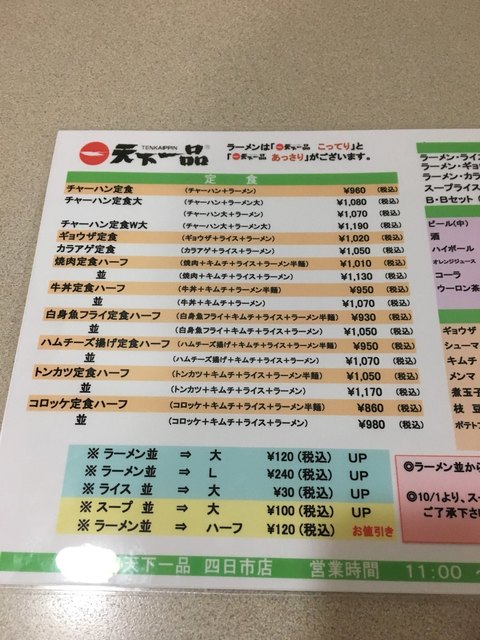 天下一品
TENKAIPPIN
ラーメンは「天下一品 こってり」と
「天下一品 あっさり」がございます。
定 食
チャーハン定食 (チャーハン+ラーメン) ¥960 (税込)
チャーハン定食大 (チャーハン+ラーメン大) ¥1,080 (税込)
(チャーハン大+ラーメン) ¥1,070 (税込)
チャーハン定食W大 (チャーハン大+ラーメン大) ¥1,190 (税込)
ギョウザ定食 (ギョウザ+ライス+ラーメン) ¥1,020 (税込)
カラアゲ定食 (カラアゲ+ライス+ラーメン) ¥1,050 (税込)
焼肉定食ハーフ (焼肉+キムチ+ライス+ラーメン半麺) ¥1,010 (税込)
並 (焼肉+キムチ+ライス+ラーメン) ¥1,130 (税込)
牛丼定食ハーフ (牛丼+キムチ+ラーメン半麺) ¥950 (税込)
並 (牛丼+キムチ+ラーメン) ¥1,070 (税込)
白身魚フライ定食ハーフ (白身魚フライ+キムチ+ライス+ラーメン半麺) ¥930 (税込)
並 (白身魚フライ+キムチ+ライス+ラーメン) ¥1,050 (税込)
ハムチーズ揚げ定食ハーフ (ハムチーズ揚げ+キムチ+ライス+ラーメン半麺) ¥950 (税込)
並 (ハムチーズ揚げ+キムチ+ライス+ラーメン) ¥1,070 (税込)
トンカツ定食ハーフ (トンカツ+キムチ+ライス+ラーメン半麺) ¥1,050 (税込)
並 (トンカツ+キムチ+ライス+ラーメン) ¥1,170 (税込)
コロッケ定食ハーフ (コロッケ+キムチ+ライス+ラーメン半麺) ¥860 (税込)
並 (コロッケ+キムチ+ライス+ラーメン) ¥980 (税込)
※ ラーメン並 ⇒ 大 ¥120(税込) UP
※ ラーメン並 ⇒ L ¥240(税込) UP
※ ライス 並 ⇒ 大 ¥30(税込) UP
※ スープ 並 ⇒ 大 ¥100(税込) UP
※ ラーメン並 ⇒ ハーフ ¥120(税込) お値引き
天下一品 四日市店 営業時間 11:00 ～
ラーメン・ライス
ラーメン・ギョ
ラーメン・カラ
スープライス
B・Bセット
ビール(中)
酒
ハイボール
オレンジジュース
コーラ
ウーロン茶
ギョウザ
シューマ
キムチ
メンマ
煮玉子
枝 豆
ポテト
◎ラーメン並から
◎10/1より、スー
ご了承下さ